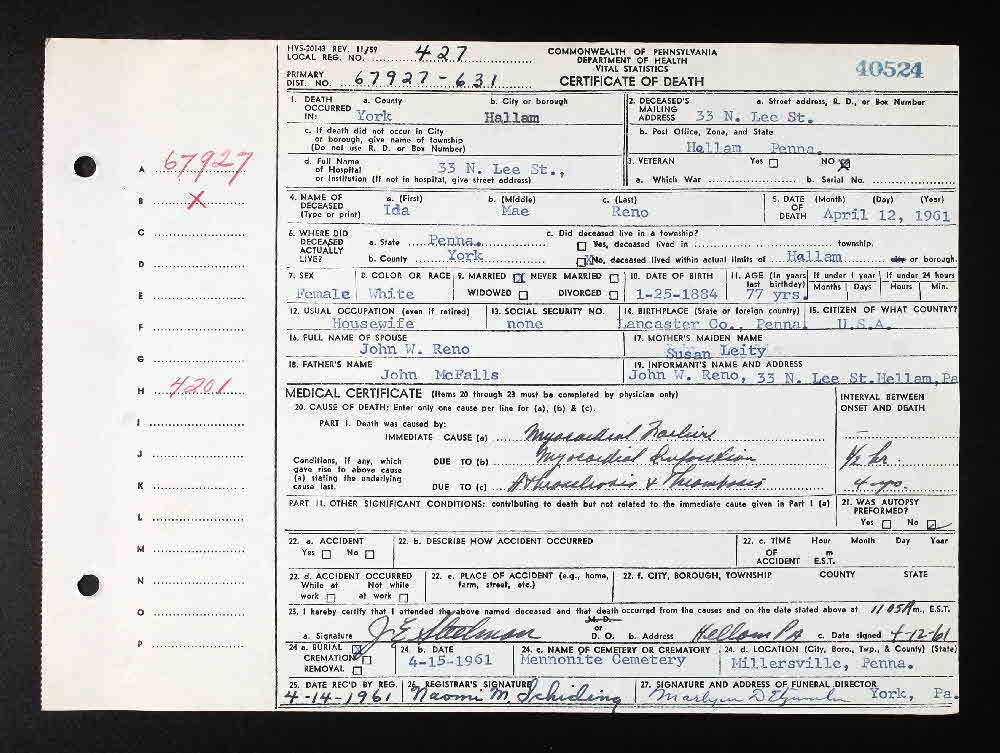 HVS-20143 REV. 11/59
LOCAL REG. NO. 427
PRIMARY
DIST. NO. 67927-631
COMMONWEALTH OF PENNSYLVANIA
DEPARTMENT OF HEALTH
VITAL STATISTICS
CERTIFICATE OF DEATH
40524
1. DEATH OCCURRED IN: a. County York b. City or borough Hallam
c. If death did not occur in City
or borough, give name of township
(Do not use R. D. or Box Number)
d. Full Name of Hospital 33 N. Lee St.,
or Institution (If not in hospital, give street address)
2. DECEASED'S MAILING ADDRESS a. Street address, R. D., or Box Number
33 N. Lee St.
b. Post Office, Zone, and State
Hallam Penna.
3. VETERAN Yes NO X
a. Which War b. Serial No.
4. NAME OF DECEASED (Type or print) a. (First) b. (Middle) c. (Last)
Ida Mae Reno
5. DATE OF DEATH (Month) (Day) (Year)
April 12, 1961
6. WHERE DID DECEASED ACTUALLY LIVE? a. State Penna.
b. County York
c. Did deceased live in a township?
Yes, deceased lived in township.
X No, deceased lived within actual limits of Hallam city or borough.
7. SEX Female
8. COLOR OR RACE White
9. MARRIED X NEVER MARRIED
WIDOWED DIVORCED
10. DATE OF BIRTH 1-25-1884
11. AGE (In years last birthday) 77 yrs.
If under 1 year Months Days
If under 24 hours Hours Min.
12. USUAL OCCUPATION (even if retired) Housewife
13. SOCIAL SECURITY NO. none
14. BIRTHPLACE (State or foreign country) Lancaster Co., Penna.
15. CITIZEN OF WHAT COUNTRY? U.S.A.
16. FULL NAME OF SPOUSE John W. Reno
17. MOTHER'S MAIDEN NAME Susan Leity
18. FATHER'S NAME John McFalls
19. INFORMANT'S NAME AND ADDRESS
John W. Reno, 33 N. Lee St. Hellam, Pa
MEDICAL CERTIFICATE (Items 20 through 23 must be completed by physician only)
INTERVAL BETWEEN ONSET AND DEATH
20. CAUSE OF DEATH: Enter only one cause per line for (a), (b) & (c).
PART I. Death was caused by:
IMMEDIATE CAUSE (a) Myocardial Failure
Conditions, if any, which
gave rise to above cause
(a) stating the underlying
cause last.
DUE TO (b) Myocardial Infarction 1/2 hr.
DUE TO (c) & Thrombosis 4 yrs.
PART II. OTHER SIGNIFICANT CONDITIONS: contributing to death but not related to the immediate cause given in Part I (a)
21. WAS AUTOPSY PREFORMED?
Yes No
22. a. ACCIDENT Yes No
22. b. DESCRIBE HOW ACCIDENT OCCURRED
22. c. TIME OF ACCIDENT Hour m E.S.T. Month Day Year
22. d. ACCIDENT OCCURRED
While at work Not while at work
22. e. PLACE OF ACCIDENT (e.g., home, farm, street, etc.)
22. f. CITY, BOROUGH, TOWNSHIP COUNTY STATE
23. I hereby certify that I attended the above named deceased and that death occurred from the causes and on the date stated above at 1105A m., E.S.T.
a. Signature J E Steelman M. D. or D. O. b. Address Hellam Pa c. Date signed 4-12-61
24 a. BURIAL X
CREMATION
REMOVAL
24. b. DATE 4-15-1961
24. c. NAME OF CEMETERY OR CREMATORY
Mennonite Cemetery
24. d. LOCATION (City, Boro., Twp., & County) (State)
Millersville, Penna.
25. DATE REC'D BY REG. 4-14-1961
26. REGISTRAR'S SIGNATURE Naomi M.
27. SIGNATURE AND ADDRESS OF FUNERAL DIRECTOR
York, Pa.
A 67927
B X
C
D
E
F
G
H 4201
I
J
K
L
M
N
O
P